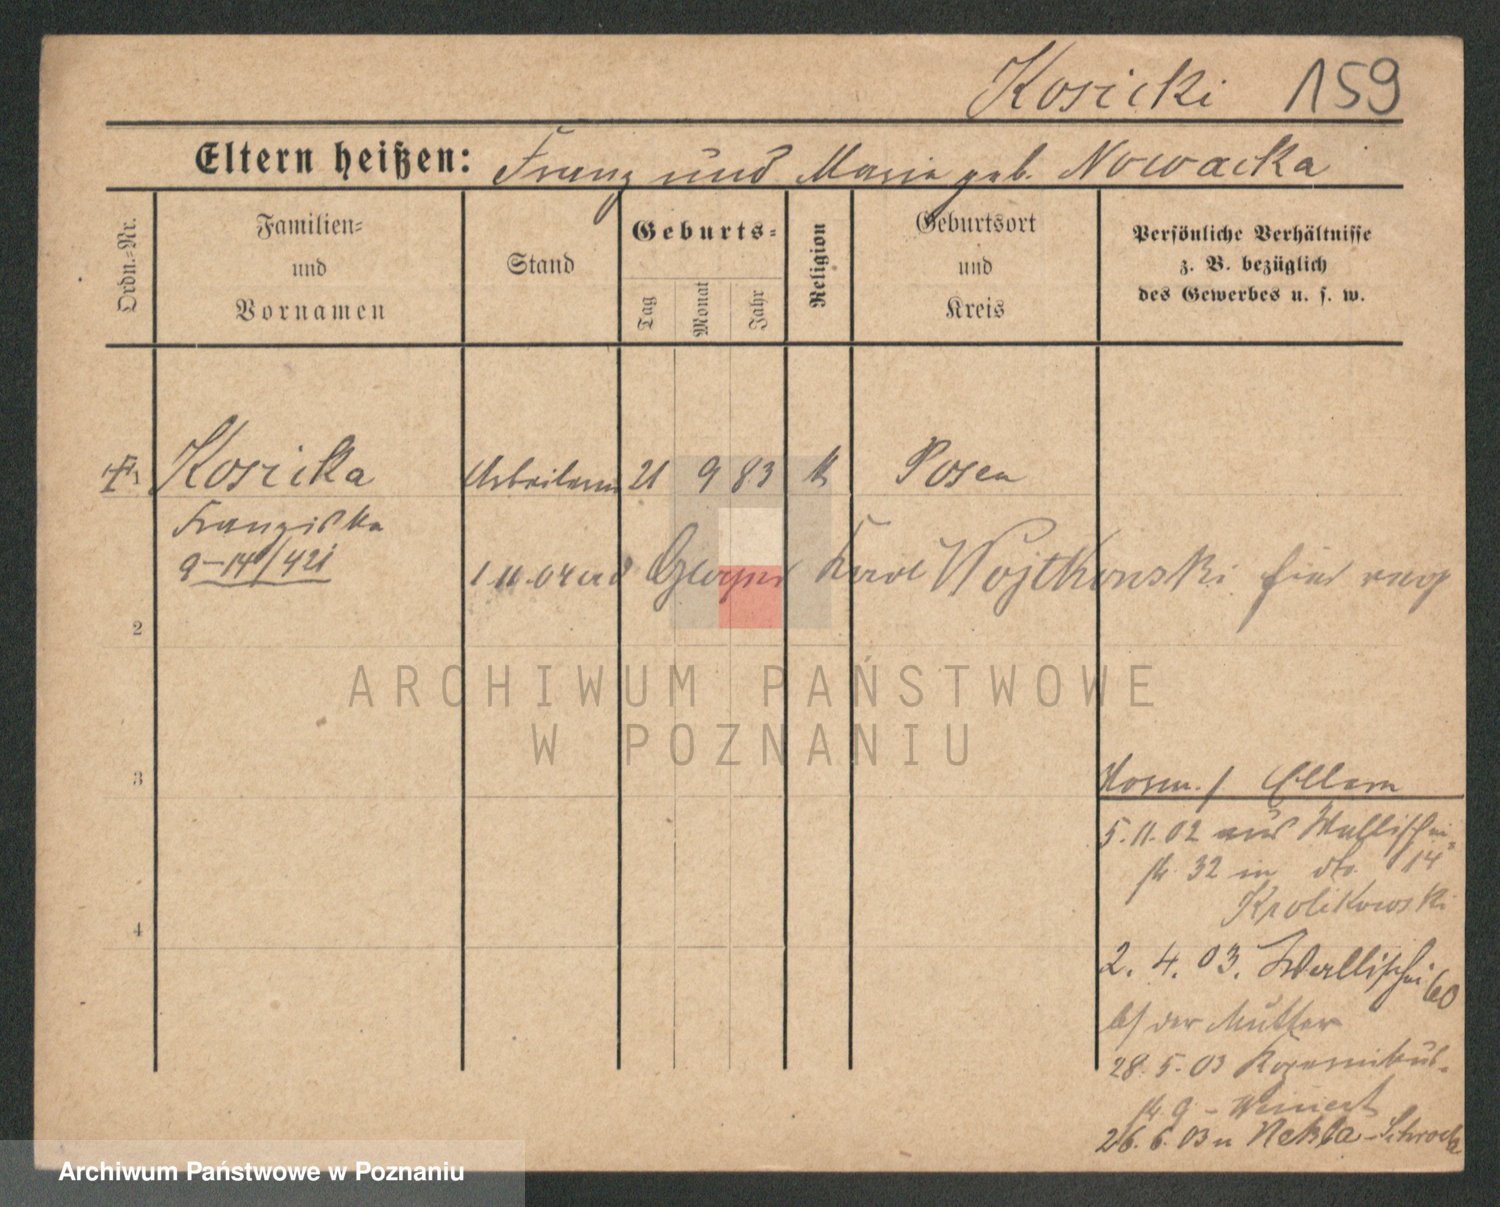 Kosicki 159
Eltern heißen: Franz und Maria geb. Nowacka
Ordn.-Nr.
Familien-
und
Vornamen
Stand
Geburts-
Tag
Monat
Jahr
Religion
Geburtsort
und
Kreis
Persönliche Verhältnisse
z. B. bezüglich
des Gewerbes u. s. w.
Kosicka Arbeiterin 21 9 83 k Posen
Franziska
9-14/421
1 11. 04 Karl Wojtkowski
2
3
4
Eltern
5.11.02 aus Wallischei
str 32 in dto. 14
Krolikowski
2. 4. 03. Wallischei 60
b/ der Mutter
28. 5. 03
str. 9 -
26. 6. 03 n Nekla - Schroda
ARCHIWUM PAŃSTWOWE
W POZNANIU
Archiwum Państwowe w Poznaniu